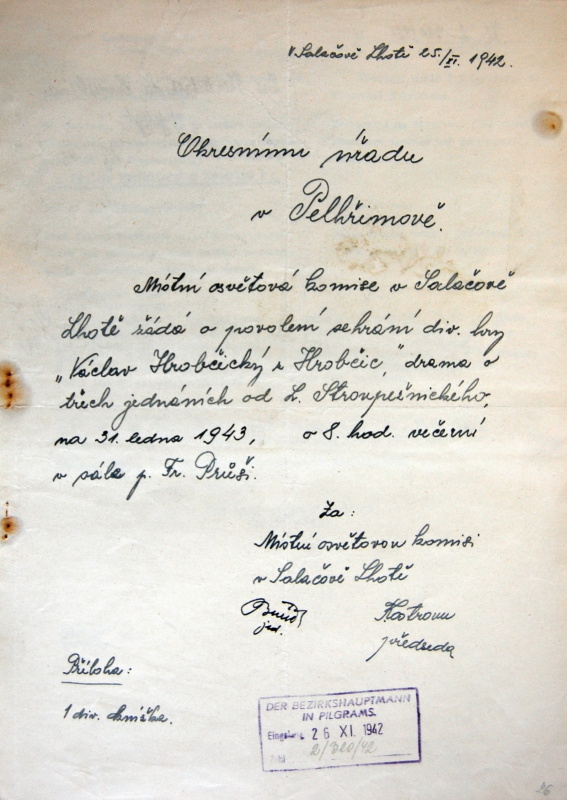 V Salačově Lhotě 25./XI. 1942.
Okresnímu úřadu
v Pelhřimově.
Místní osvětová komise v Salačově
Lhotě žádá o povolení sehrání div. hry
„Václav Hrobčický z Hrobčic," drama o
třech jednáních od L. Stroupežnického,
na 31. ledna 1943, o 8. hod. večerní
v sále p. Fr. Průši.
Za:
Místní osvětovou komisi
v Salačově Lhotě
jed.
předseda
Příloha:
1 div. knížka.
DER BEZIRKSHAUPTMANN
IN PILGRAMS.
26 XI. 1942
2/320/42